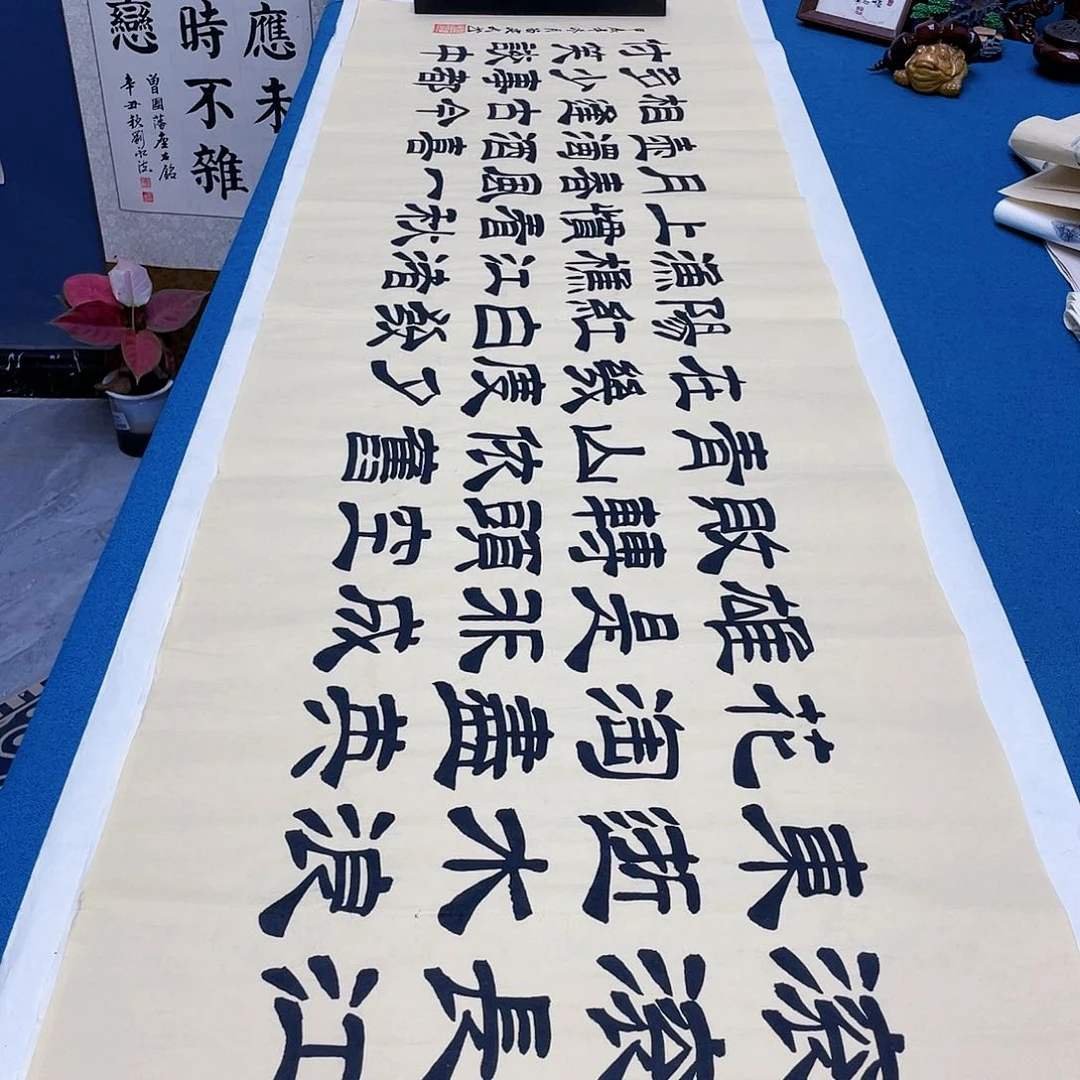 滚滚長江
東逝水浪
花淘盡英
雄是非成
敗轉頭空
青山依舊
在幾度夕
陽紅白發
漁樵江渚
上慣看秋
月春風一
壺濁酒喜
相逢古今
多少事都
付笑談中
應未
時不雜
戀
曾國藩座右銘
辛丑秋劉永